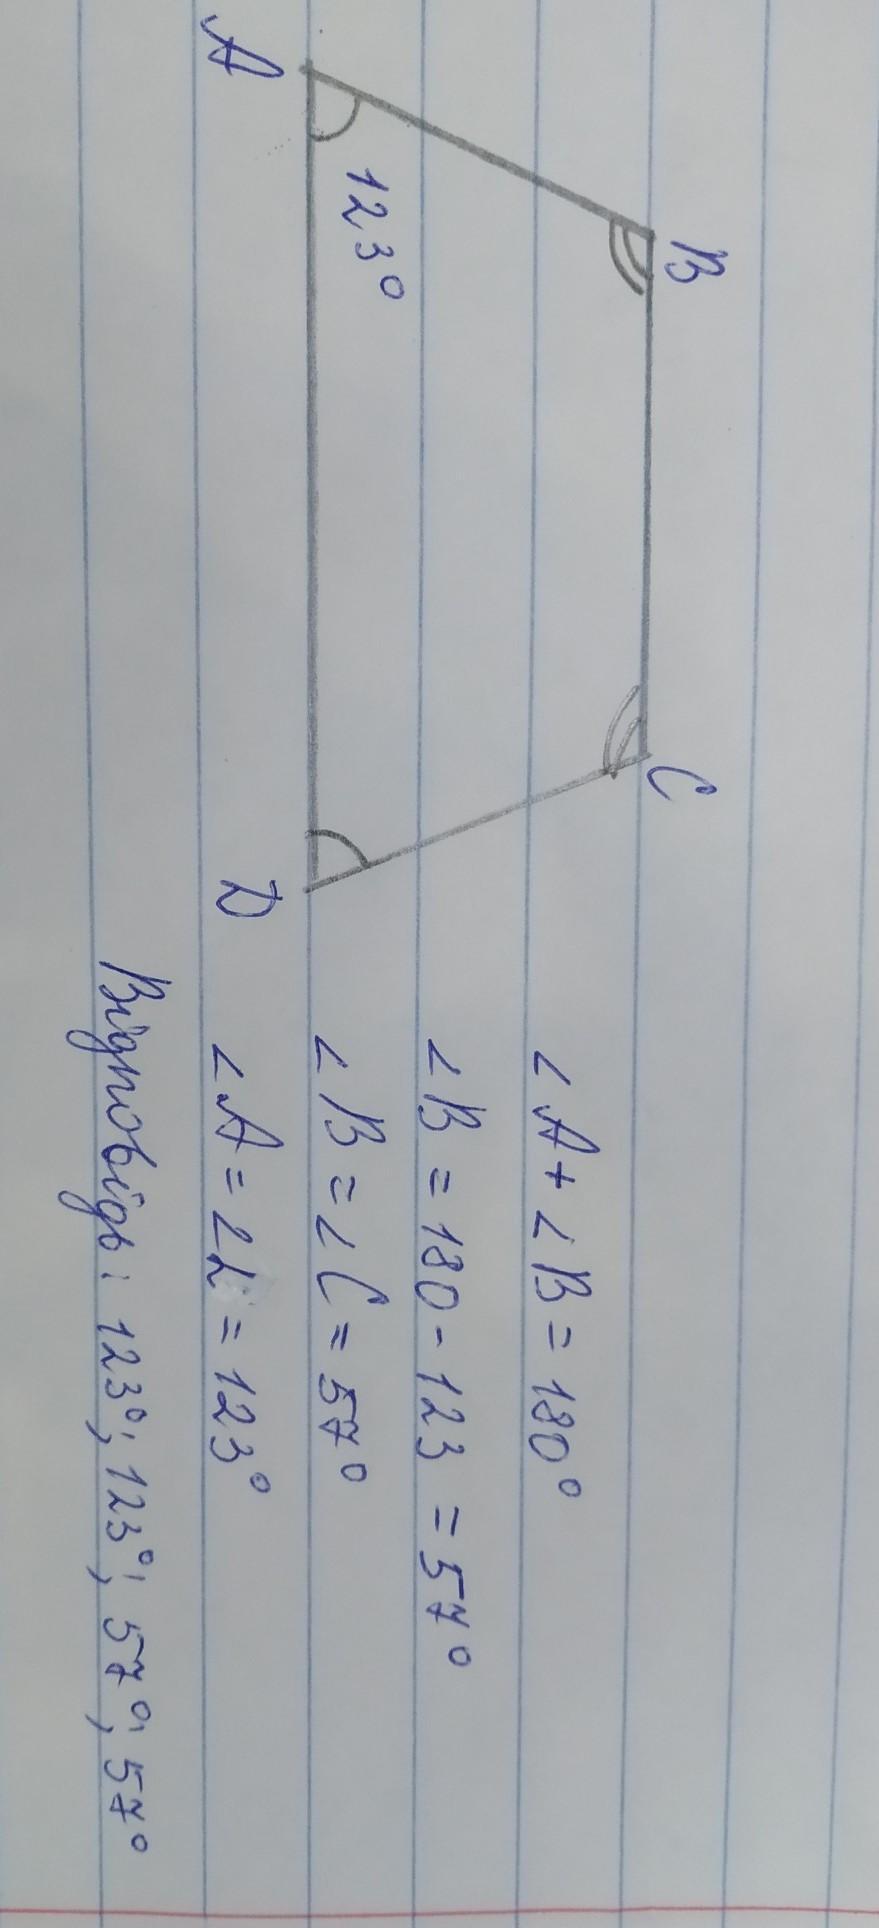 B
C
A
123°
D
∠A+∠B=180°
∠B=180-123=57°
∠B=∠C=57°
=123°
Відповідь: 123°; 123°; 57°; 57°